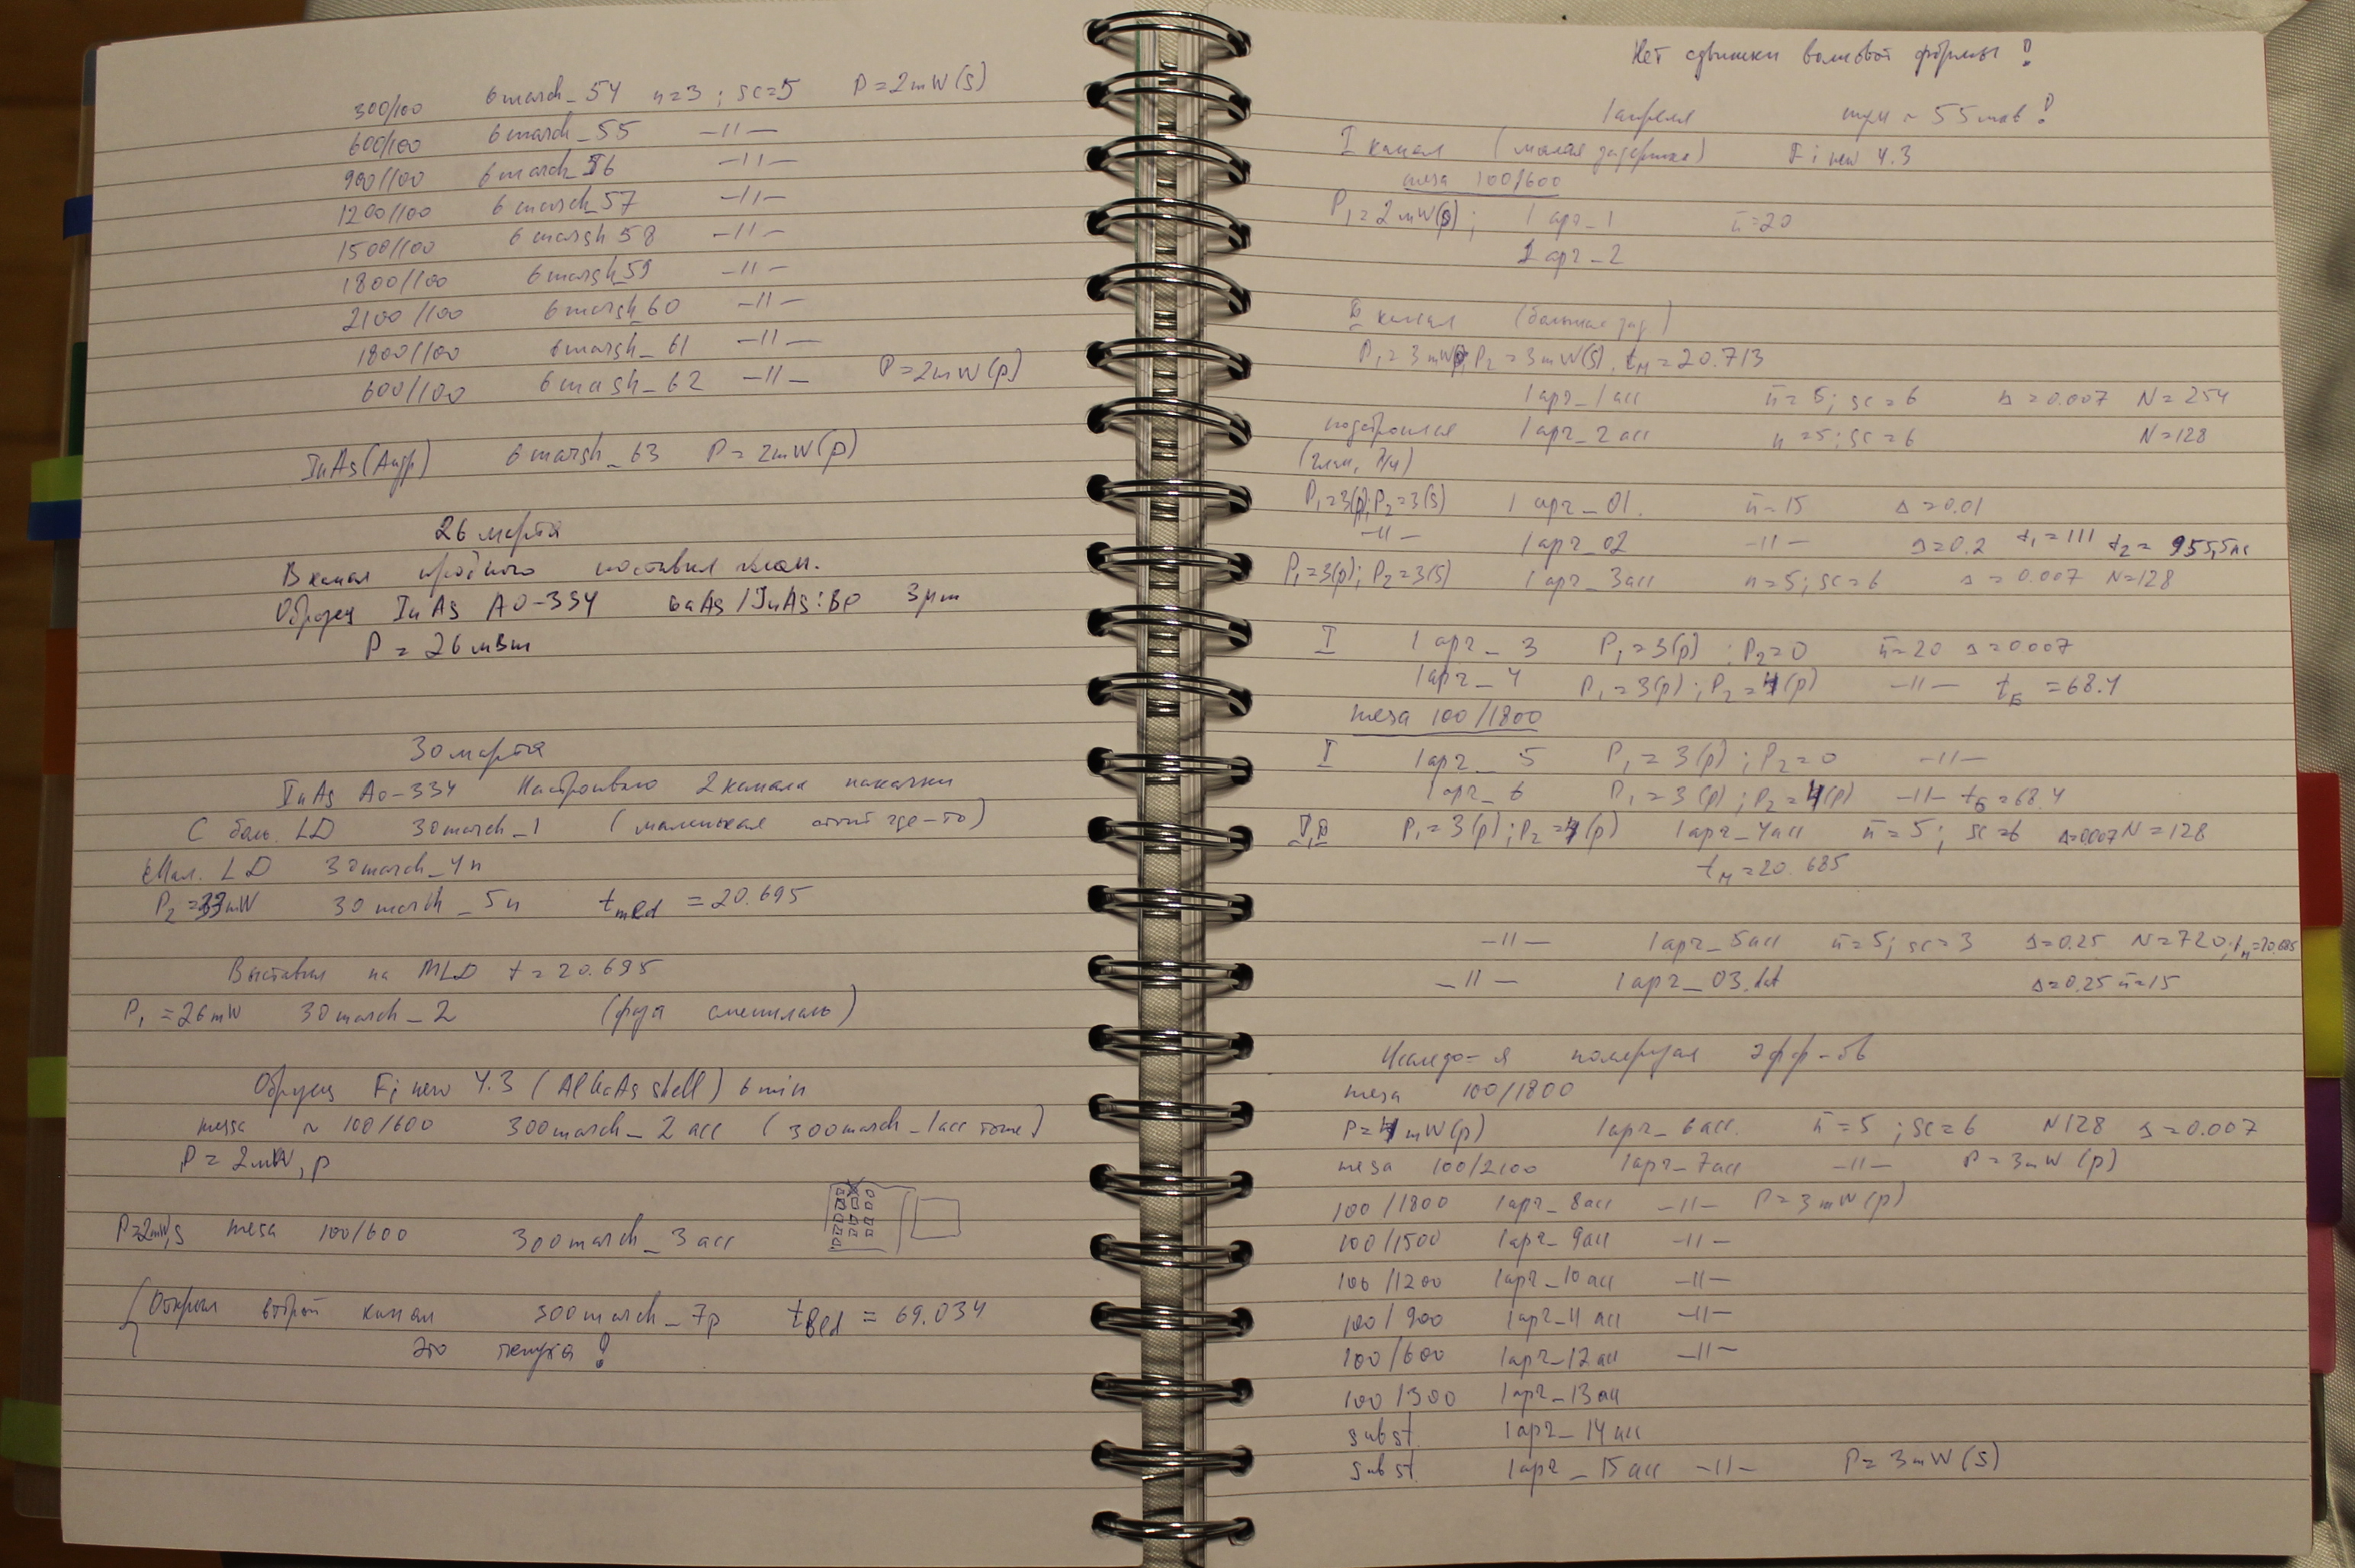 300/100 6march_54 n=3 ; sc=5 P=2mW(s)
600/100 6march_55 —11—
900/100 6march_56 —11—
1200/100 6march_57 —11—
1500/100 6marsh 58 —11—
1800/100 6marsh_59 —11—
2100/100 6marsh_60 —11—
1800/100 6marsh_61 —11—
600/100 6marsh_62 —11— P=2mW(p)
InAs(Андр) 6marsh_63 P=2mW(p)
26 марта
В канал пробного поставил
Образец InAs AO-334 GaAs/InAs:BP 3μm
P = 26 мВт
30 марта
InAs AO-334 Настроиваю 2 канала накачки
С бол. LD 30march_1 (маленькая стоит где-то)
Мал. LD 30march_4n
P₂=33mW 30march_5n t med = 20.695
Выставил на MLD t=20.695
P₁=26mW 30march_2 (фаза сменилась)
Образец Fi new 4.3 (AlGaAs shell) 6min
mesa ~ 100/600 300march_2acc (300march_1acc тоже)
P=2mW, p
P=2mW,s mesa 100/600 300march_3acc
Открыл второй канал 300march_7p t Bld = 69.034
это !
Нет сдвижки волновой формы!
1 апреля шум ~ 55 !
I канал (малая задержка) Fi new 4.3
mesa 100/600
P₁=2mW(s); 1apr_1 n=20
1apr_2
II канал (большая зад)
P₁=3mW(p), P₂=3mW(s). tм=20.713
1apr_1acc n=5; sc=6 s=0.007 N=254
подстроился 1apr_2acc n=5; sc=6 N=128
P₁=3(p); P₂=3(s) 1apr_01. n=15 s=0.01
—11— 1apr_02 —11— s=0.2 t₁=111 t₂=955,5
P₁=3(p); P₂=3(s) 1apr_3acc n=5; sc=6 s=0.007 N=128
I 1apr_3 P₁=3(p) ; P₂=0 n=20 s=0007
1apr_4 P₁=3(p); P₂=4(p) —11— tБ=68.4
mesa 100/1800
I 1apr_5 P₁=3(p) ; P₂=0 —11—
1apr_6 P₁=3(p) ; P₂=4(p) —11— tБ=68.4
I,II P₁=3(p); P₂=4(p) 1apr_4acc n=5; sc=6 s=0.007 N=128
tм=20.685
—11— 1apr_5acc n=5; sc=3 s=0.25 N=720; tм=20.685
—11— 1apr_03.dat s=0.25 n=15
Исследо-я эфф-ов
mesa 100/1800
P=4mW(p) 1apr_6acc. n=5 ; sc=6 N128 s=0.007
mesa 100/2100 1apr_7acc —11— P=3mW(p)
100/1800 1apr_8acc —11— P=3mW(p)
100/1500 1apr_9acc —11—
100/1200 1apr_10acc —11—
100/900 1apr_11acc —11—
100/600 1apr_12acc —11—
100/300 1apr_13acc
subst. 1apr_14acc
subst. 1apr_15acc —11— P=3mW(s)